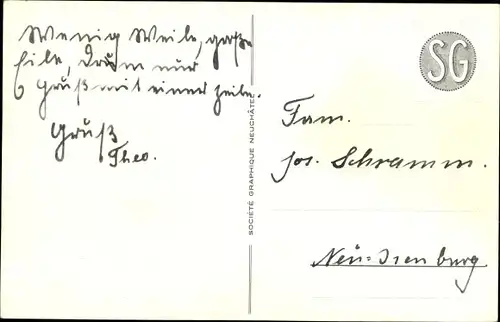 Wenig Weile, große
Eile, drum nur
6 Grüß mit einer Zeile.
Gruß
Theo.
SOCIÉTÉ GRAPHIQUE NEUCHÂTEL
SG
Fam.
Jos. Schramm.
Neu-Isenburg